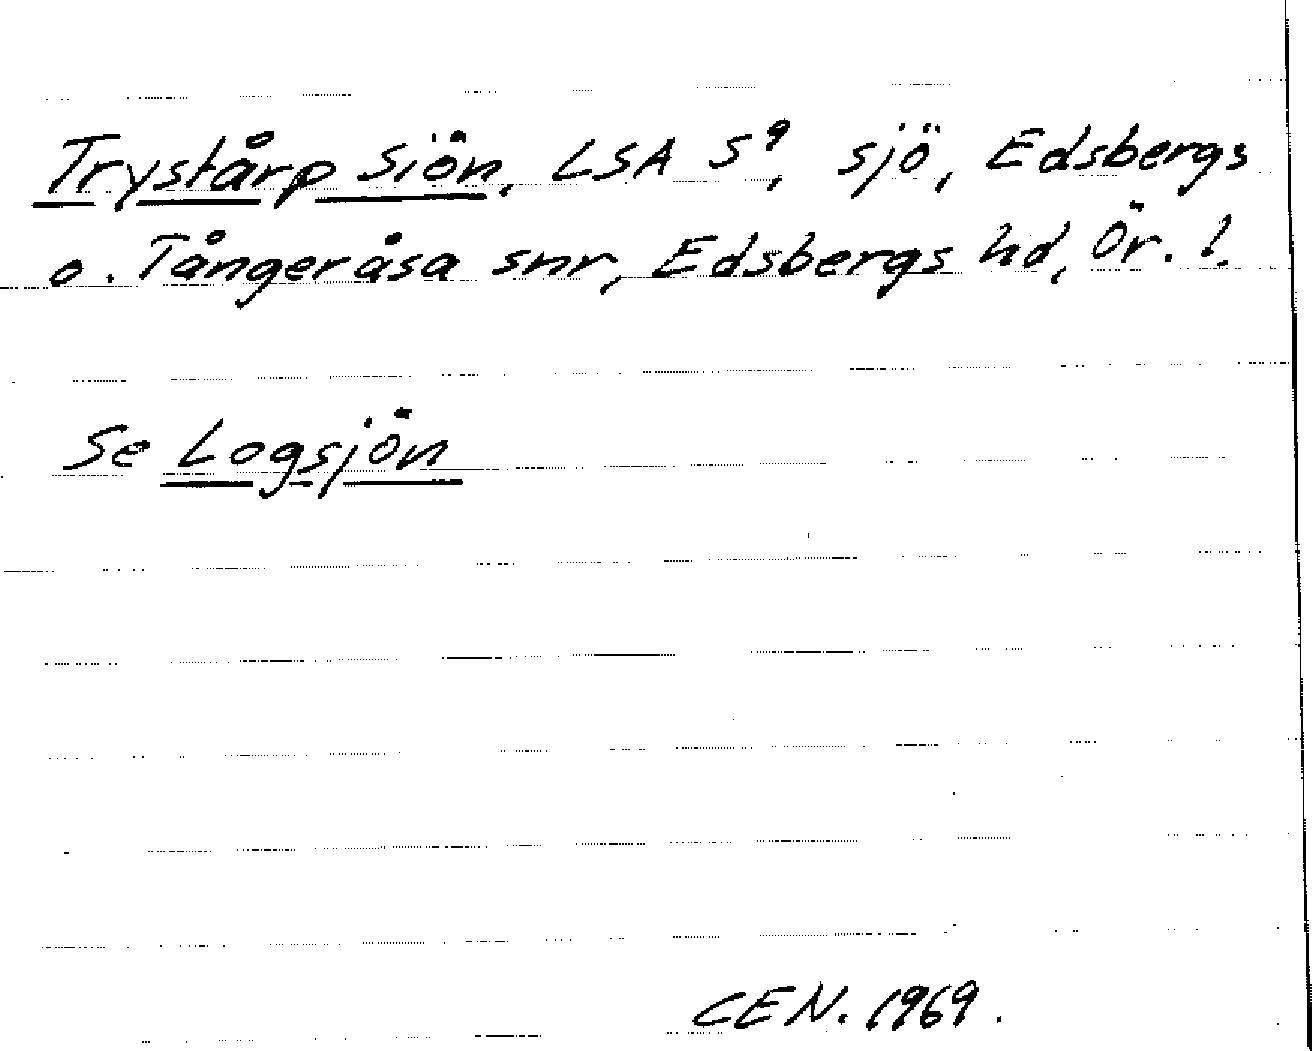 Trystårp Siön, LSA S⁹, sjö, Edsbergs
o. Tångeråsa snr, Edsbergs hd, Ör. l.
Se Logsjön
CEN. 1969.